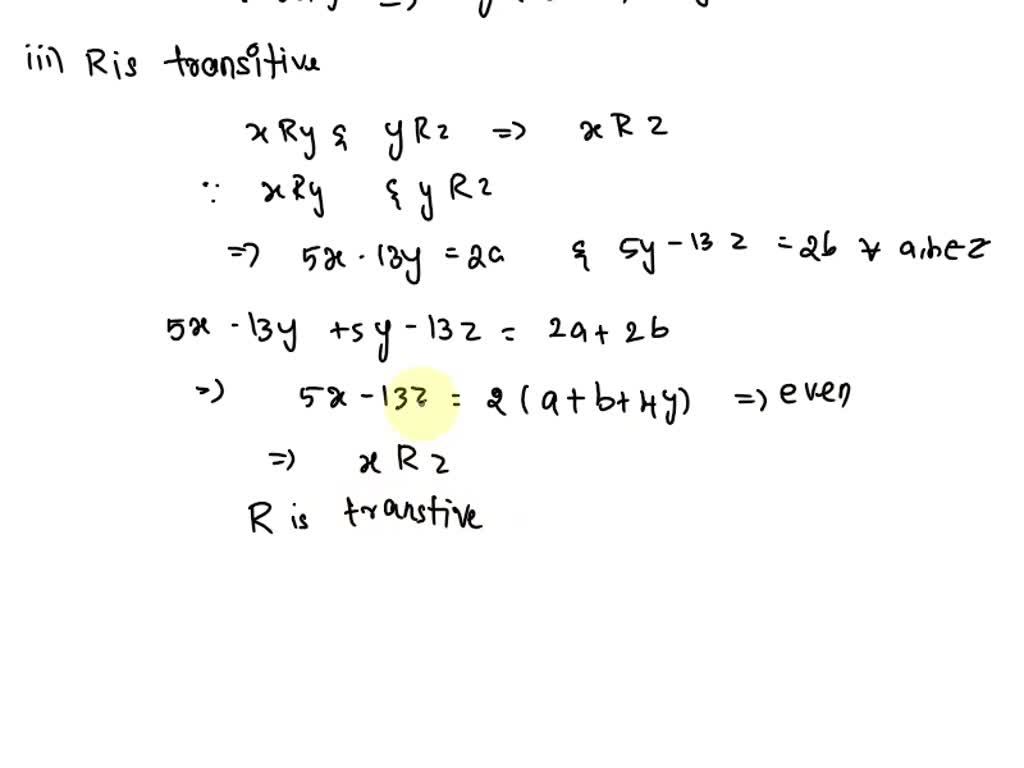 iii) R is transitive
x R y & y R z => x R z
∵ x R y & y R z
=> 5x - 13y = 2a & 5y - 13 z = 2b ∀ a,b ∈ Z
5x - 13y + 5y - 13z = 2a + 2b
=> 5x - 13z = 2 ( a + b + 4y ) => even
=> x R z
R is transtive